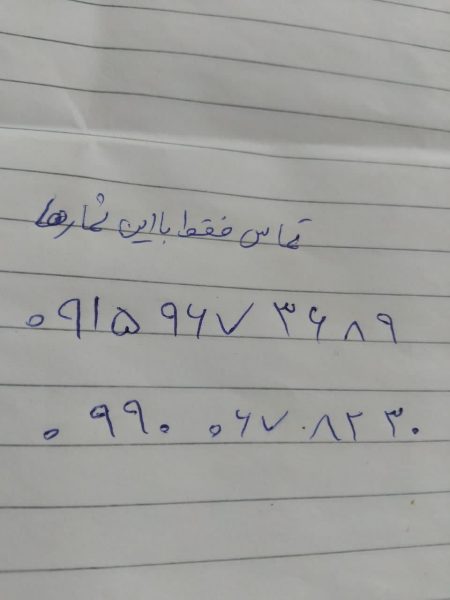 تماس فقط با این شمارها
۰۹۱۵ ۹۶۷ ۳۶۸۹
۰۹۹۰ ۰۶۷۰۸۲۳۰